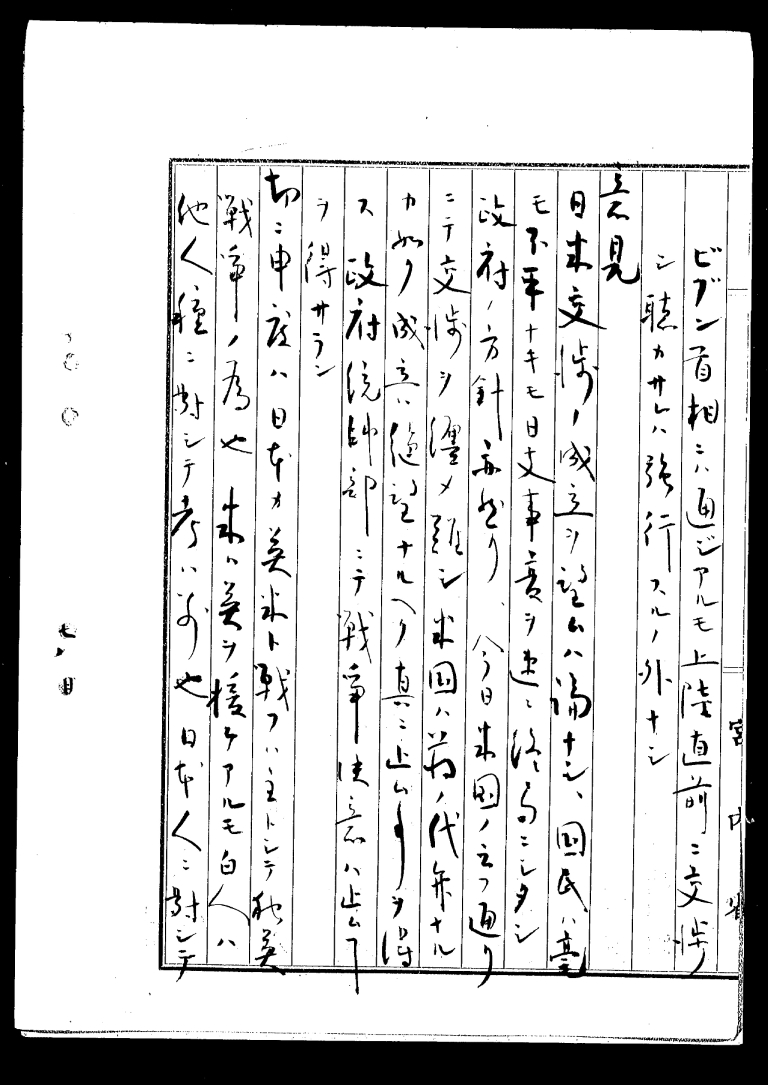 ピブン首相ニハ通ジアルモ上陸直前ニ交渉
シ聴カサレハ強行スルノ外ナシ
意見
日米交渉ノ成立ヲ望ムハ論ナシ、国民ハ毫
モ不平ナキモ日支事変ヲ速ニ終局ニシタシ
政府ノ方針亦然リ、今日米国ノ云フ通リ
ニテ交渉ヲ纏メ難シ米国ハ蒋ノ代弁ナル
カ如ク成立ハ絶望ナルヘク真ニ止ム事ヲ得
ス政府統帥部ニテ戦争決意ハ止ム
ヲ得サラン
切ニ申度ハ日本カ英米ト戦フハ主トシテ独英
戦争ノ為也米ハ英ヲ援ケアルモ白人ハ
他人種ニ対シテ考ハ別也日本人ニ対シテ
宮内省